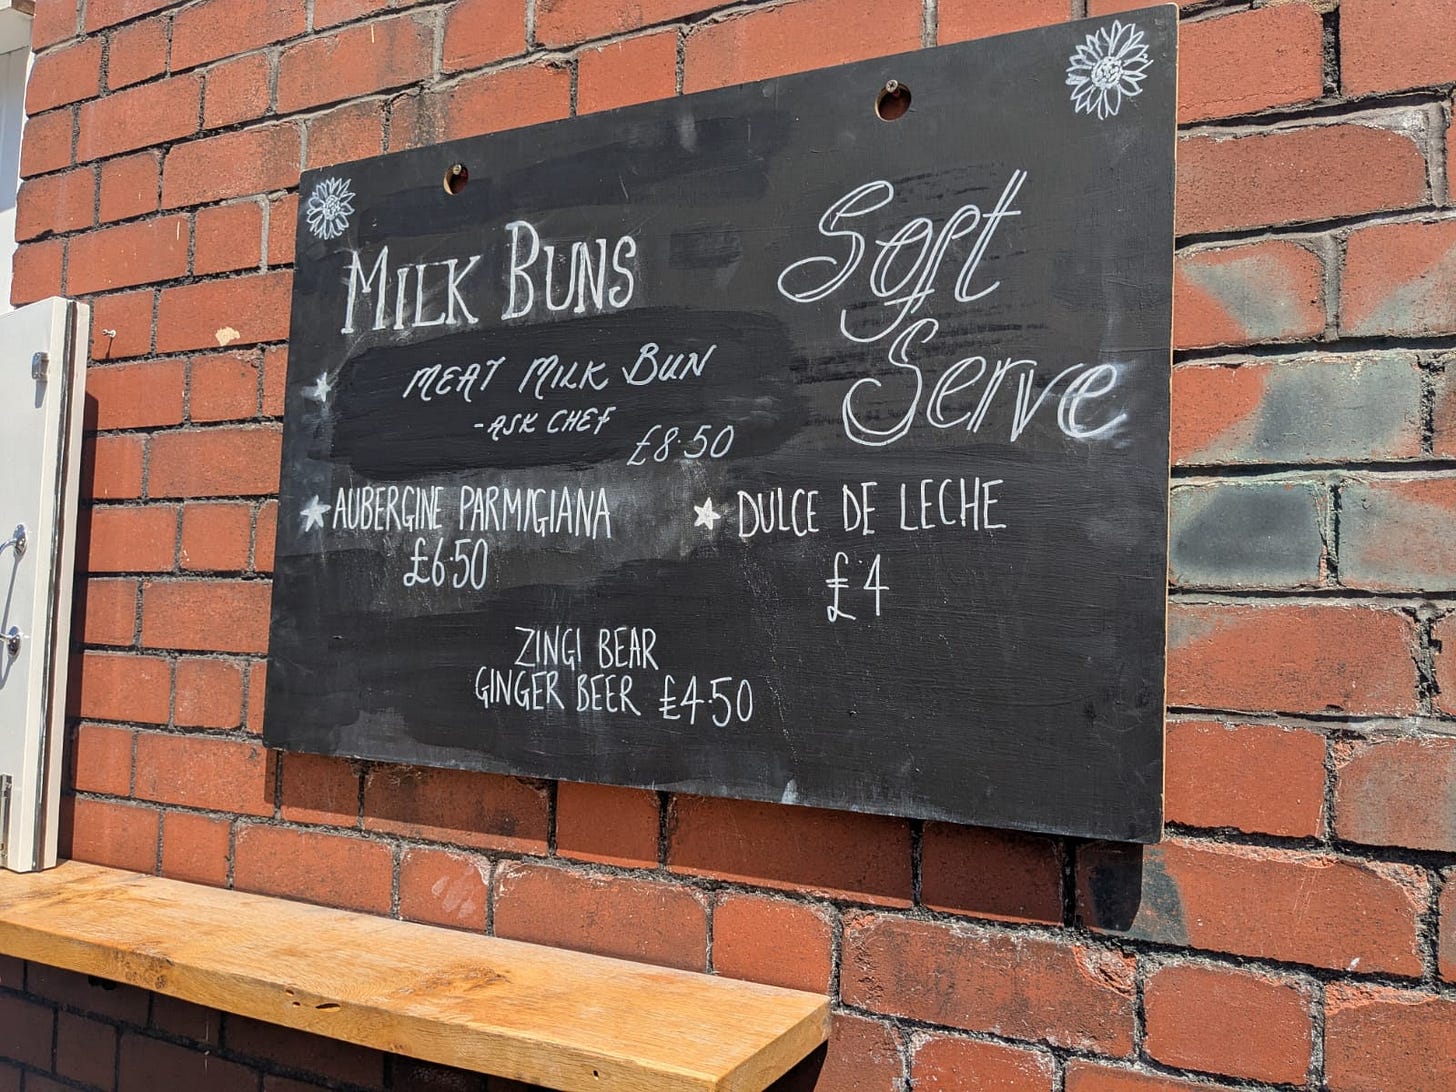 MILK BUNS
MEAT MILK BUN
-ASK CHEF
£8.50
AUBERGINE PARMIGIANA
£6.50
Soft
Serve
DULCE DE LECHE
£4
ZINGI BEAR
GINGER BEER £4.50